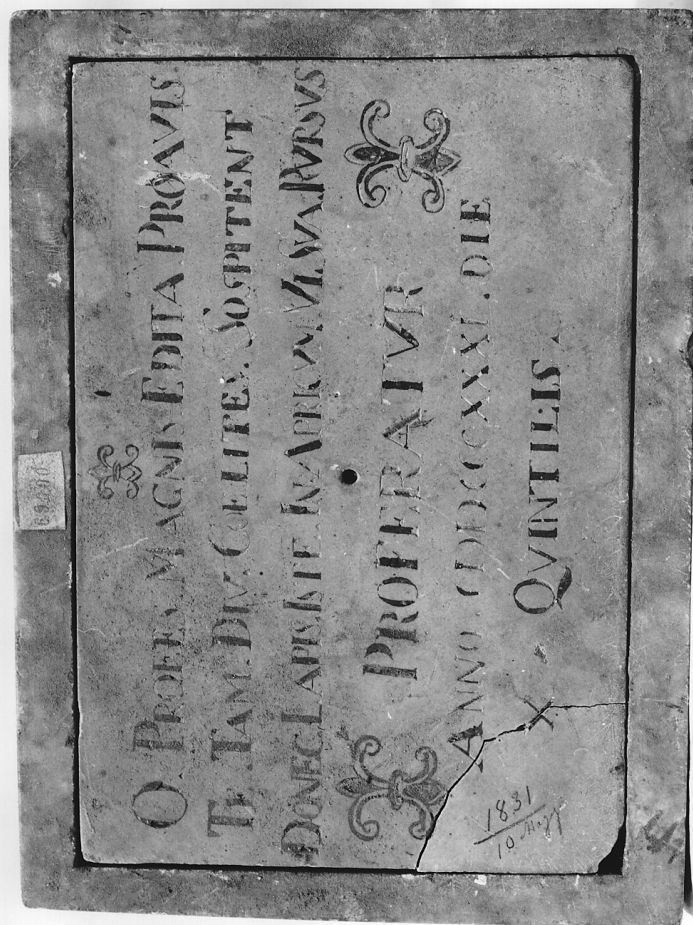 O. PROLES. MAGNIS EDITA PROAVIS.
TE. TAM. DIV. COELITES. SOSPITENT
DONEC. LAPIS. ISTE. IN. APRICVM. RVRSVS
PROFERATVR
ANNO. DIE
X QVINTILIS
1831
10